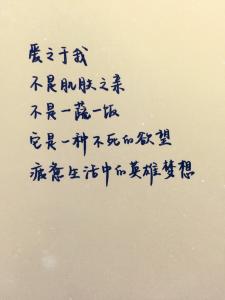 爱之于我
不是肌肤之亲
不是一蔬一饭
它是一种不死的欲望
疲惫生活中的英雄梦想